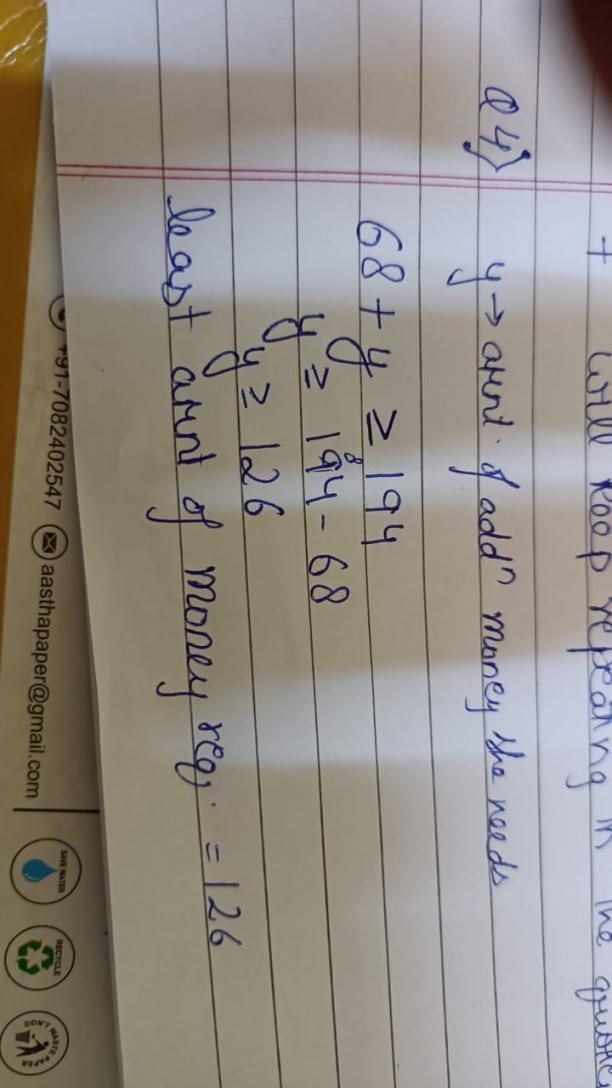 + will keep repeating in the
Q4) y → amt. of addⁿ money she needs
68 + y ≥ 194
y ≥ 194 - 68
y ≥ 126
least amnt of money req. = 126
+91-7082402547 aasthapaper@gmail.com
SAVE WATER
RECYCLE
DON'T WASTE PAPER